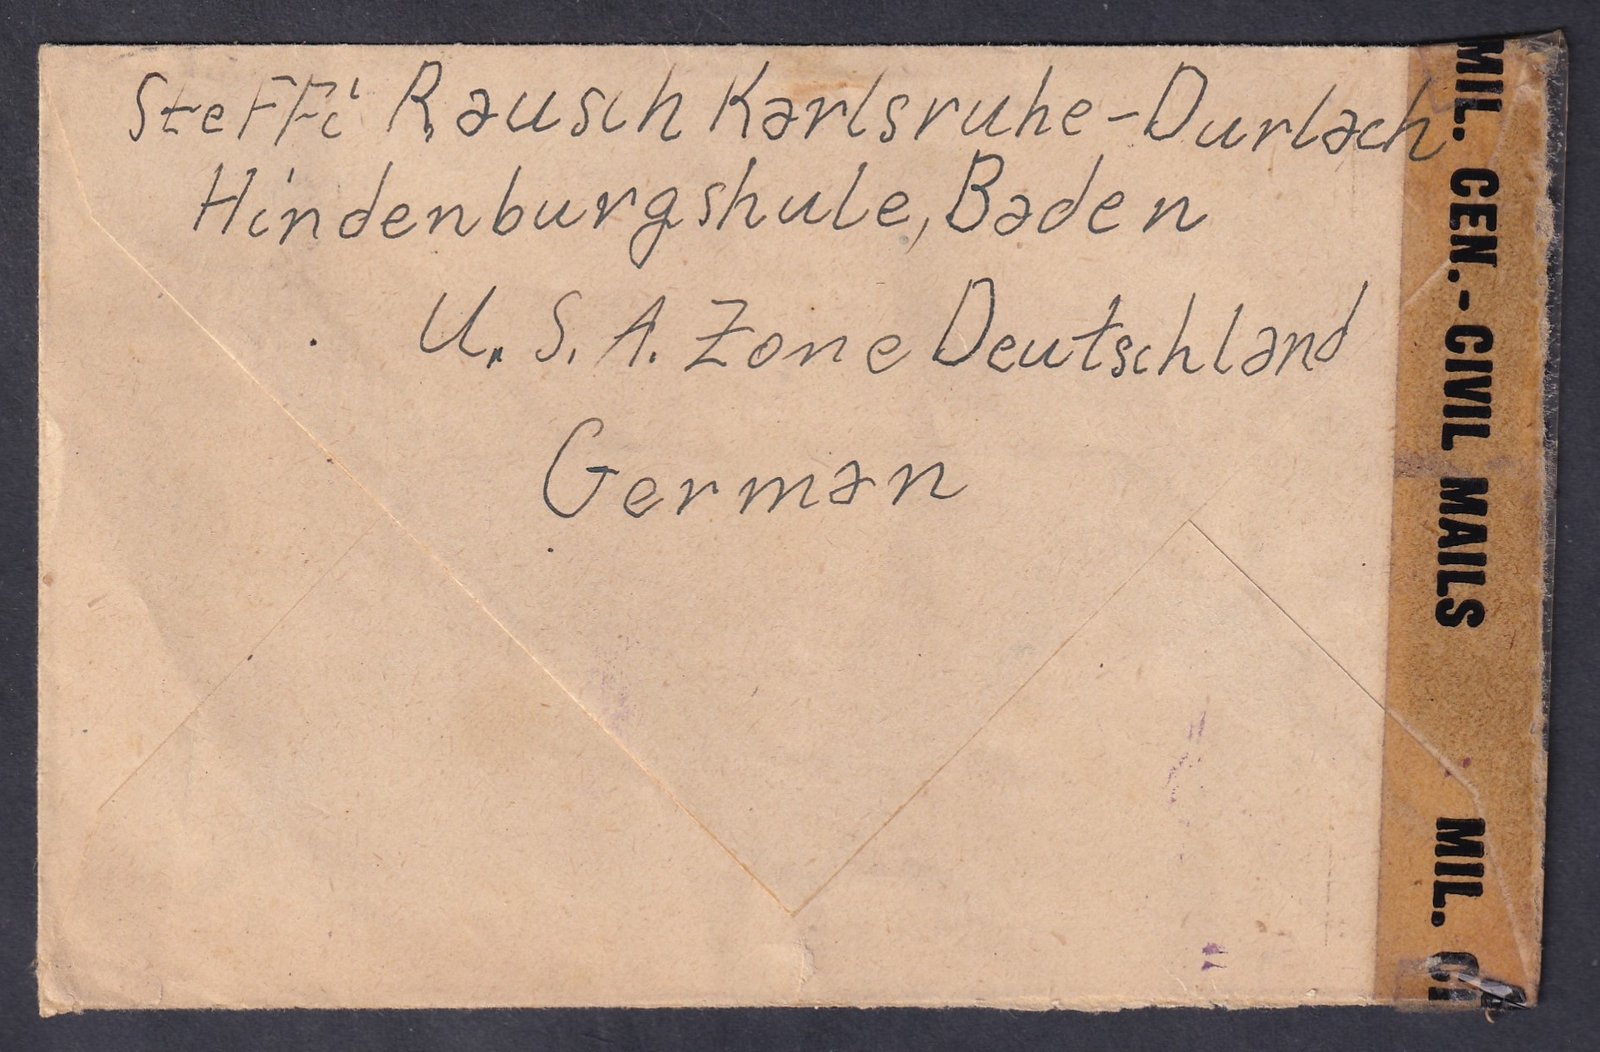 Steffi Rausch Karlsruhe-Durlach
Hindenburgshule, Baden
U. S. A. Zone Deutschland
German
MIL. CEN.-CIVIL MAILS
MIL.